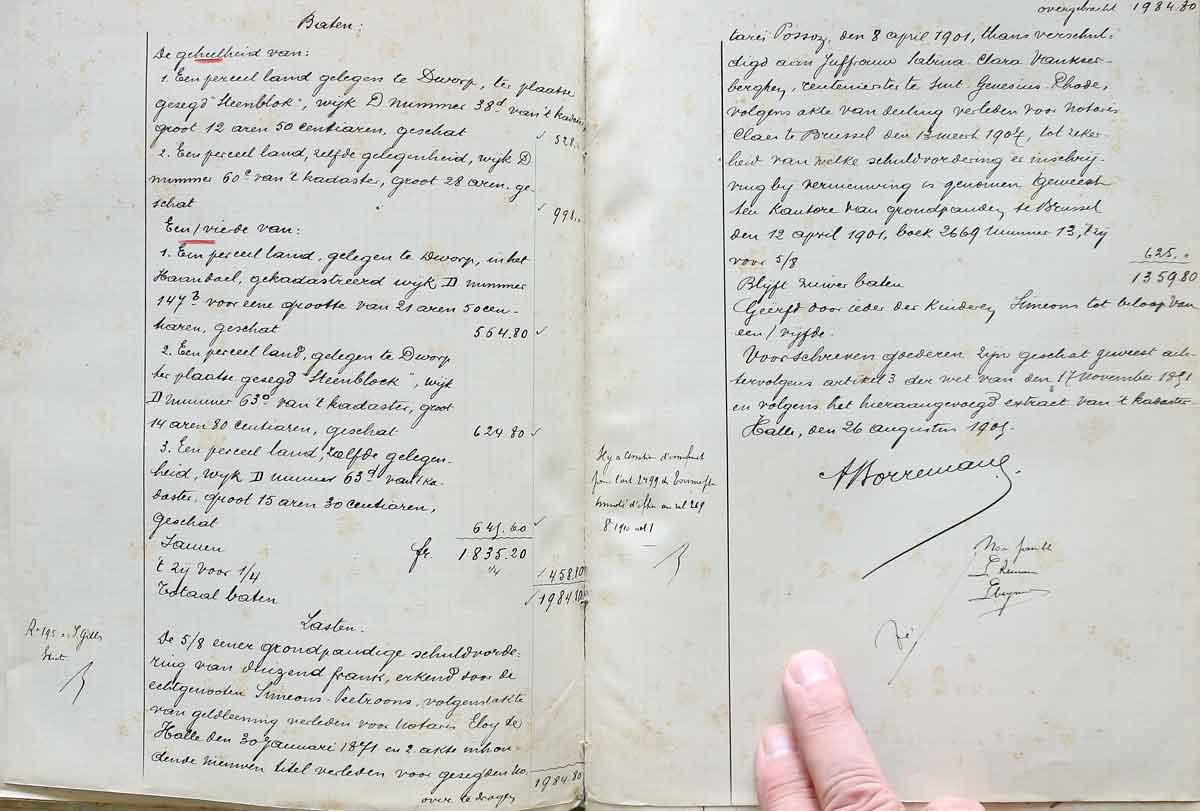 Baten:
De geheelheid van:
1. Een perceel land gelegen te Dworp, ter plaatse
gezegd "Steenblok", wijk D nummer 38d van 't kadaster,
groot 12 aren 50 centiaren, geschat 528.
2. Een perceel land, zelfde gelegenheid, wijk D
nummer 60c van 't kadaster, groot 28 aren, ge-
schat 998.
Een/vierde van:
1. Een perceel land, gelegen te Dworp, in het
gekadastreerd wijk D nummer
147 voor eene grootte van 21 aren 50 cen-
tiaren, geschat 564.80
2. Een perceel land, gelegen te Dworp
ter plaatse gezegd "Steenblock", wijk
D nummer 63 van 't kadaster, groot
14 aren 80 centiaren, geschat 624.80
3. Een perceel land, zelfde gelegen-
heid, wijk D nummer 63d van 't ka-
daster, groot 15 aren 30 centiaren,
geschat 645.60
Samen fr. 1835.20
1/4
't zij voor 1/4 458.80
Totaal baten 1984.80
Lasten.
De 5/8 eener grondpandige schuldvorde-
ring van duizend frank, erkend door de
echtgenooten Simeons-Peetroons, volgens akte
van geldleening verleden voor Notaris Eloy te
Halle den 30 januari 1871 en 2. akte inhou-
dende nieuwen titel verleden voor gezegden No-
over te dragen 1984.80
overgebracht 1984.80
taris Possoz, den 8 april 1901, thans verschul-
digd aan Juffrouw Sabina Clara Vankeer-
berghen, rentenierster te Sint Genesius-Rhode,
volgens akte van deeling verleden voor Notaris
Claes te Brussel den 13 meert 1907, tot zeker-
heid van welke schuldvordering er inschrij-
ving bij vernieuwing is genomen geweest
ten kantore van grondpanden te Brussel
den 12 april 1901, boek 2669 nummer 13, 't zij
voor 5/8 625.
Blijft zuiver baten 1359.80
Geërfd door ieder der kinderen Simeons tot beloop van
een/vijfde.
Voorschreven goederen zijn geschat geweest ach-
tervolgens artikel 3 der wet van den 17 November 1851
en volgens het hieraangevoegd extract van 't kadaster.
Halle, den 26 augustus 1909.
A Borremans